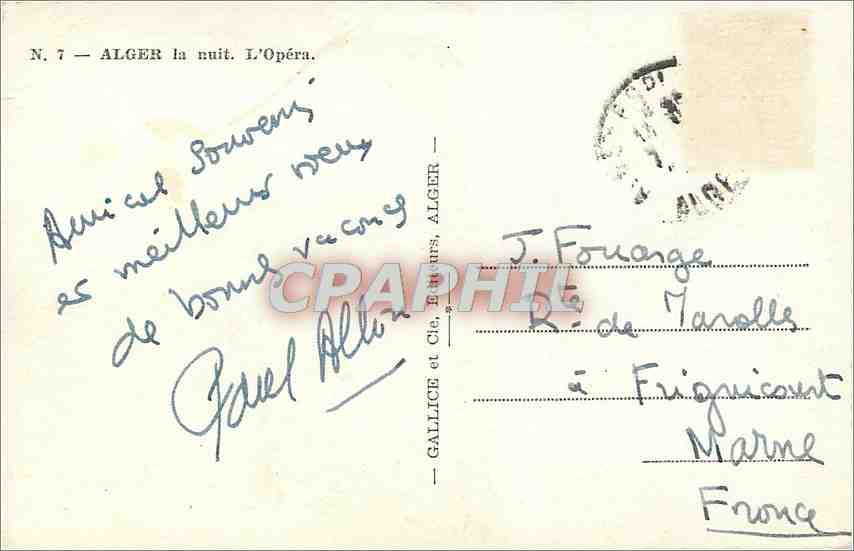 N. 7 — ALGER la nuit. L'Opéra.
Amical Souvenir
et meilleurs vœux
de bonnes vacances
Paul
— GALLICE et Cie, Editeurs, ALGER —
CPARPHIL
J. Fouarge
Rte de Marolles
à Frignicourt
Marne
France